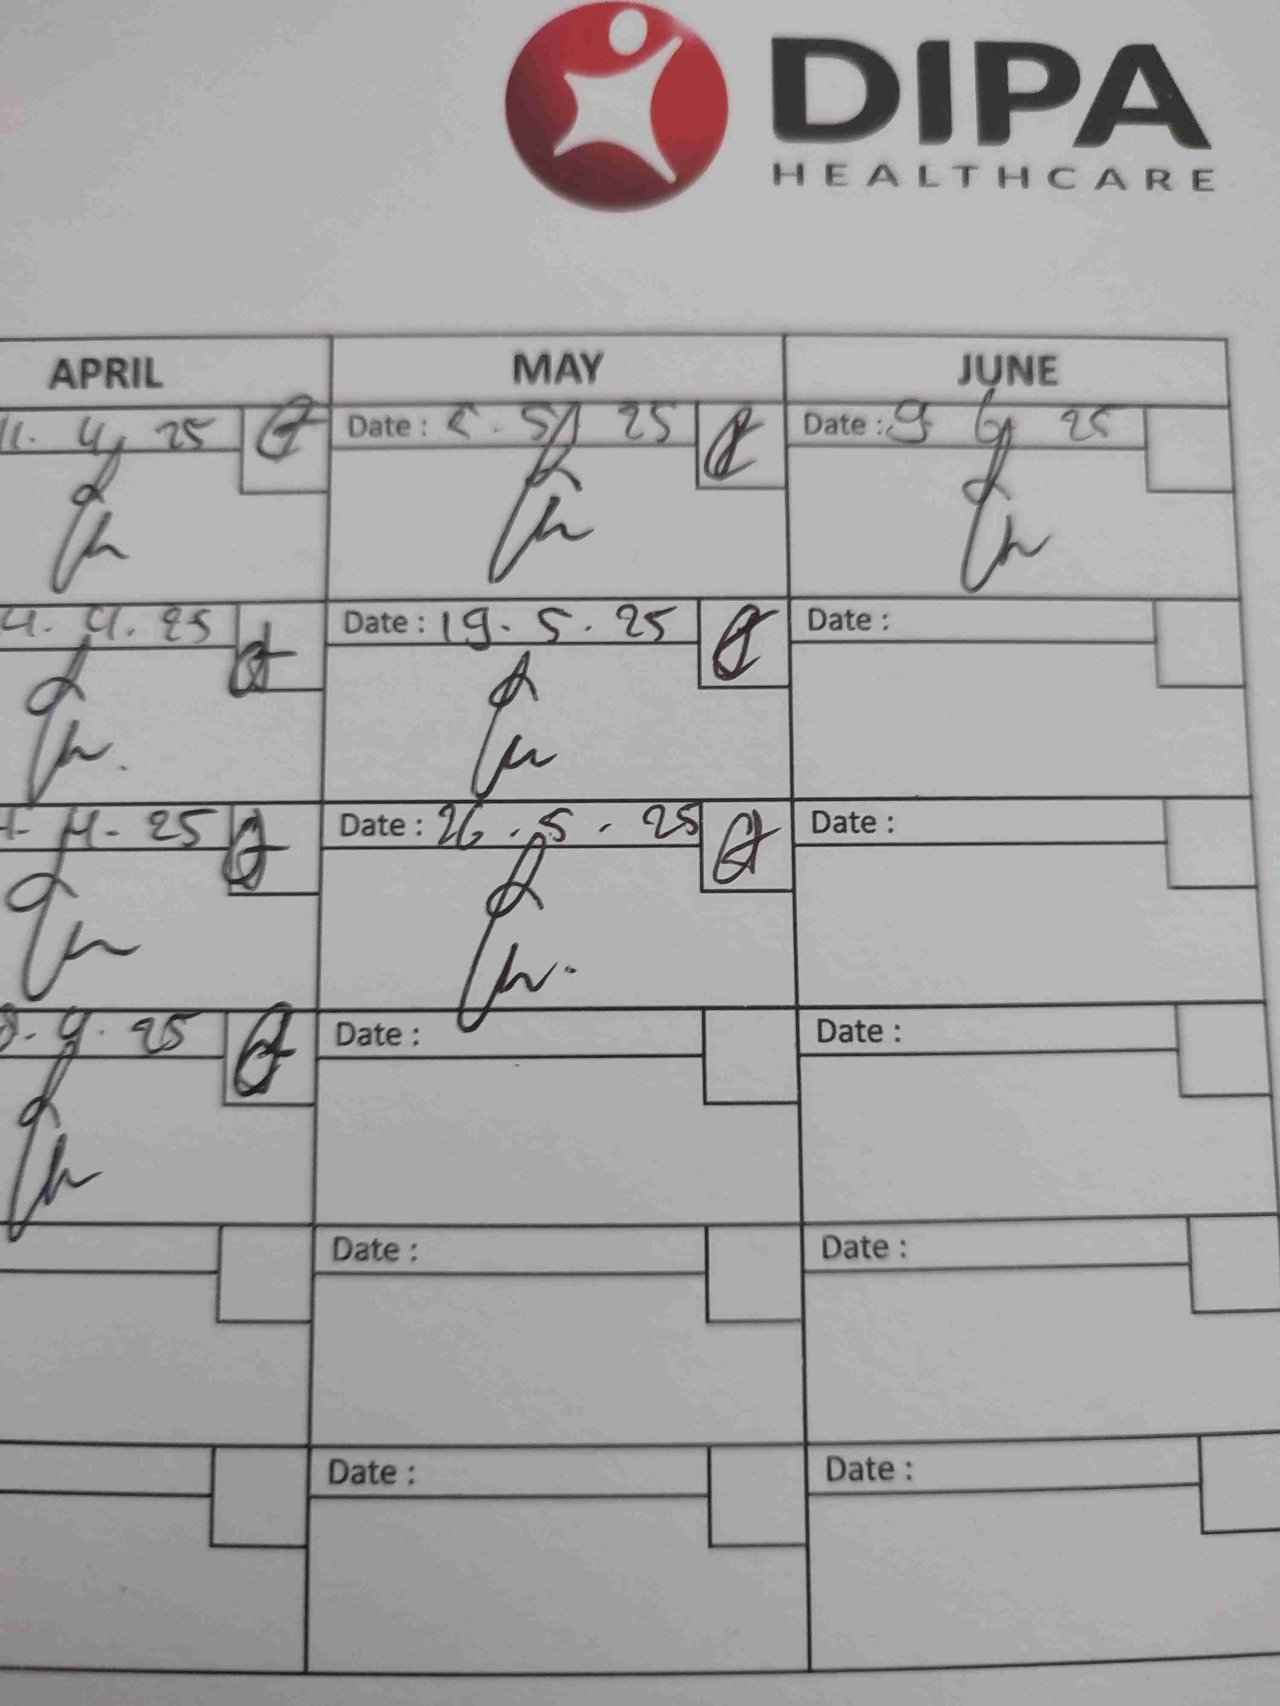 DIPA
HEALTHCARE
APRIL MAY JUNE
25 Date : 5. 5 25 Date : 9 6 25
4. 25 Date : 19. 5. 25 Date :
4- 25 Date : 26. 5. 25 Date :
25 Date : Date :
Date : Date :
Date : Date :